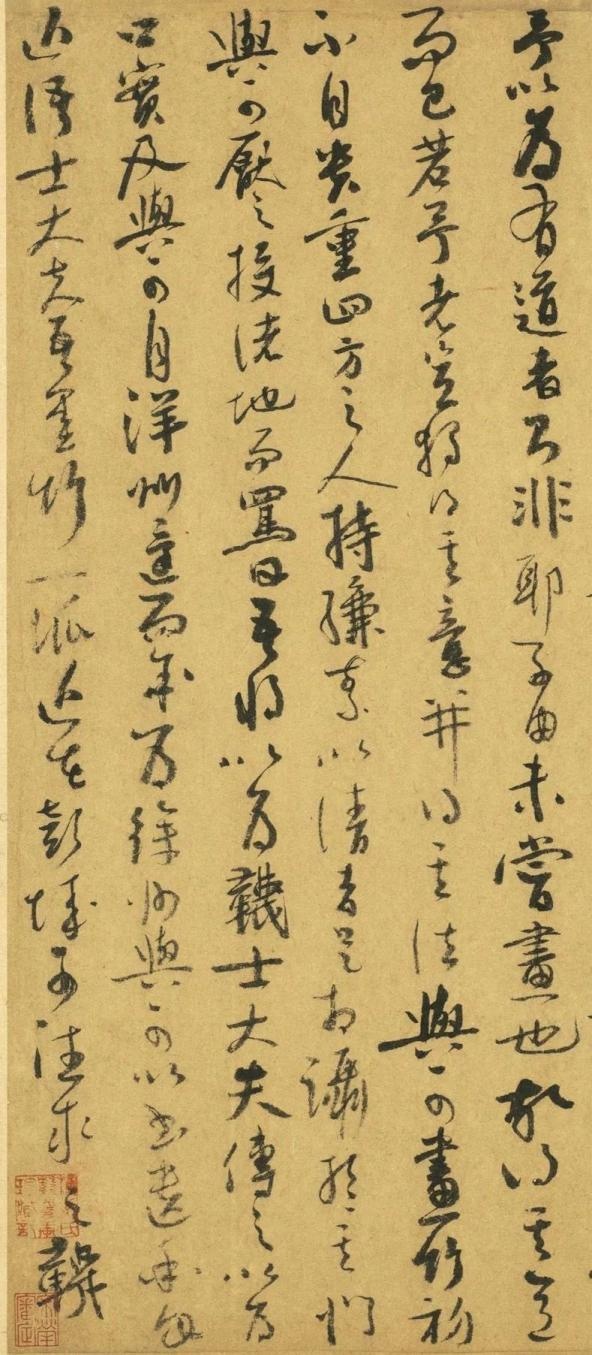 予以為有道者則非耶子由未嘗畫也故得其意
而已若予者豈獨得其意并得其法與可畫竹初
不自貴重四方之人持縑素以請者足相躡於其門
與可厭之投諸地而罵曰吾將以為韈士大夫傳之以為
口實及與可自洋州還而余為徐州與可以書遺余曰
近語士大夫吾墨竹一派近在彭城可往求之韈